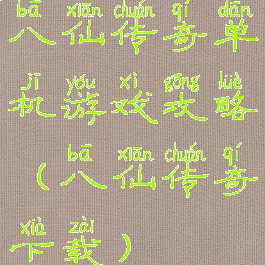 bā xiān chuán qí dān
八仙传奇单
jī yóu xì gōng lüè
机游戏攻略
bā xiān chuán qí
（八仙传奇
xià zài
下载）